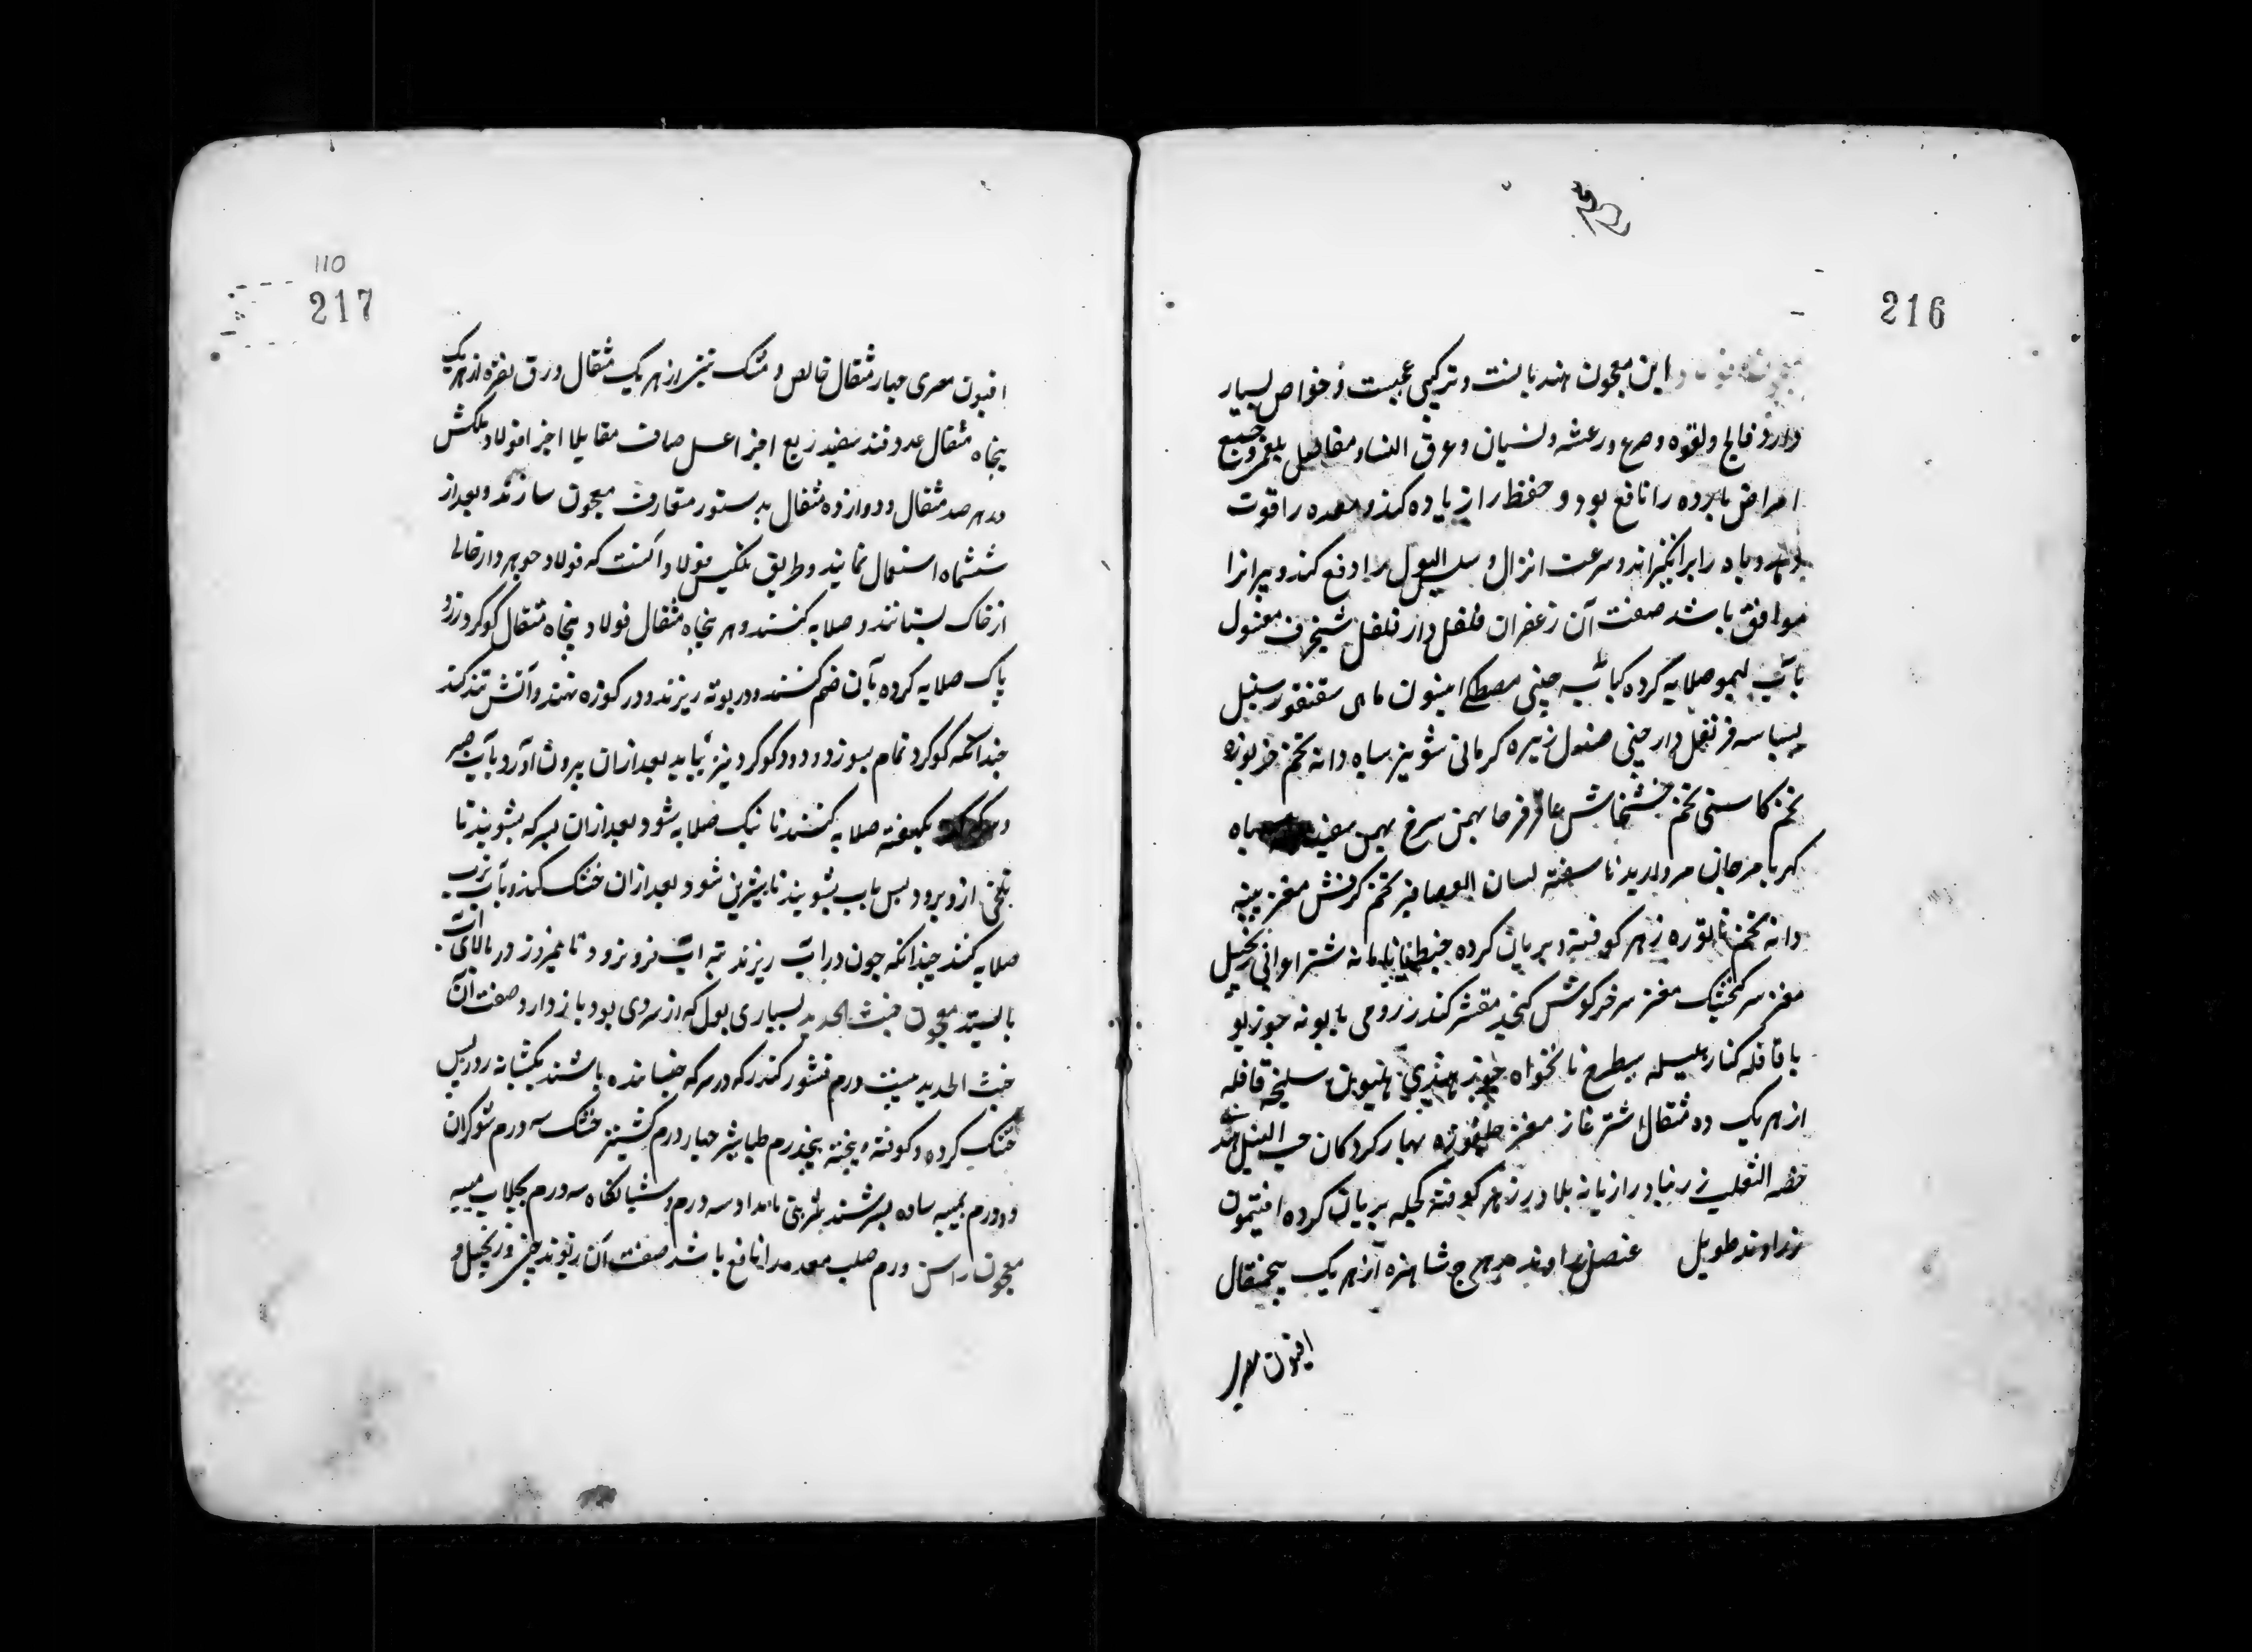 216
این معجون هندیانست و ترکیبی عجیبست و خواص بسیار
دارد فالج و لقوه و صرع و رعشه و نسیان و عرق النسا و مفاصل بلغمی و جمیع
امراض بارده را نافع بود و حفظ را زیاده کند و معده را قوت
دهد و باه را برانگیزاند و سرعت انزال و سلس البول را دفع کند و پیرانرا
موافق باشد صفت آن زعفران فلفل دارفلفل شنجرف مغسول
بآب لیمو صلایه کرده کبابه چینی مصطکی افیون ماهی سقنقور سنبل
بسباسه قرنفل دارچینی صندل زیره کرمانی شونیز سیاه دانه تخم خربوزه
تخم کاسنی تخم خشخاش عاقرقرحا بهمن سرخ بهمن سفید سیاه
کهربا مرجان مروارید ناسفته لسان العصافیر تخم کرفش مغز پنبه
دانه تخم تاتوره زهر کوفته و بریان کرده جنطیانا نامانه شتر اعرابی زنجبیل
مغز سر گنجشک مغز سر خرگوش کنجد مقشر کندر زرومی بابونه جوزبو
با قاقله کبار هلیسله سطرخ نانخواه جوز هندی سلیخه قاقله
از هر یک ده مثقال اشترغاز مغز چلغوزه بهار کردکان حب النیل هند
خصه الثعلب زرنباد رازیانه بلادر زهر کوفته کچله بریان کرده افتیمون
زراوند طویل عنصل زراوند مدحرج شاهتره از هر یک پنجمثقال
افیون مصر
110
217
افیون مصری چهار مثقال خالص و مشک تبتی از هر یک مثقال ورق نقره از هر یک
پنجاه مثقال عدد قند سفید ربع اجزا عسل صاف مقابلا اجزا فولاد مکلس
در هر صد مثقال و دوازده مثقال بدستور متعارف معجون سازند و بعد از
ششماه استعمال نمایند و طریق تکلیس فولاد آنست که فولاد جوهردار خالی
از خاک بستانند و صلایه کنند و هر پنجاه مثقال فولاد و پنجاه مثقال کوکرد زرد
پاک صلایه کرده بآن ضم کنند و در بوته ریزند و در کوزه نهند و آتش تند کنند
چندانکه کوکرد تمام بسوزد و دود کوکرد نیز نیاید بعد از ان بیرون آورد بآب صبر
و سرکه یکهفته صلایه کنند تا نیک صلایه شود بعد ازان بسرکه بشویند تا
تلخی ازو برود پس بآب بشویند تا شیرین شود بعد ازان خشک کنند و بآب ترب
صلایه کنند چندانکه چون در آب ریزند بته آب فرو نرود تا نیمروز در بالای آب
بایستد معجون خبث الحدید بسیاری بول که از سردی بود باز دارد صفت آن
خبث الحدید بیست درم قشور کندر که در سرکه خیسانده باشند یکشبانه روز پس
خشک کرده و کوفته و پخته پنجدرم طباشیر چهار درم کشنیز خشک سه درم شوکران
دو درم بمیبه ساده بسرشند شربتی بامداد سه درم و شبانگاه سه درم بجلاب میبه
معجون راسن ورم صلب معده را نافع باشد صفت آن ریوند چینی و زنجبیل و